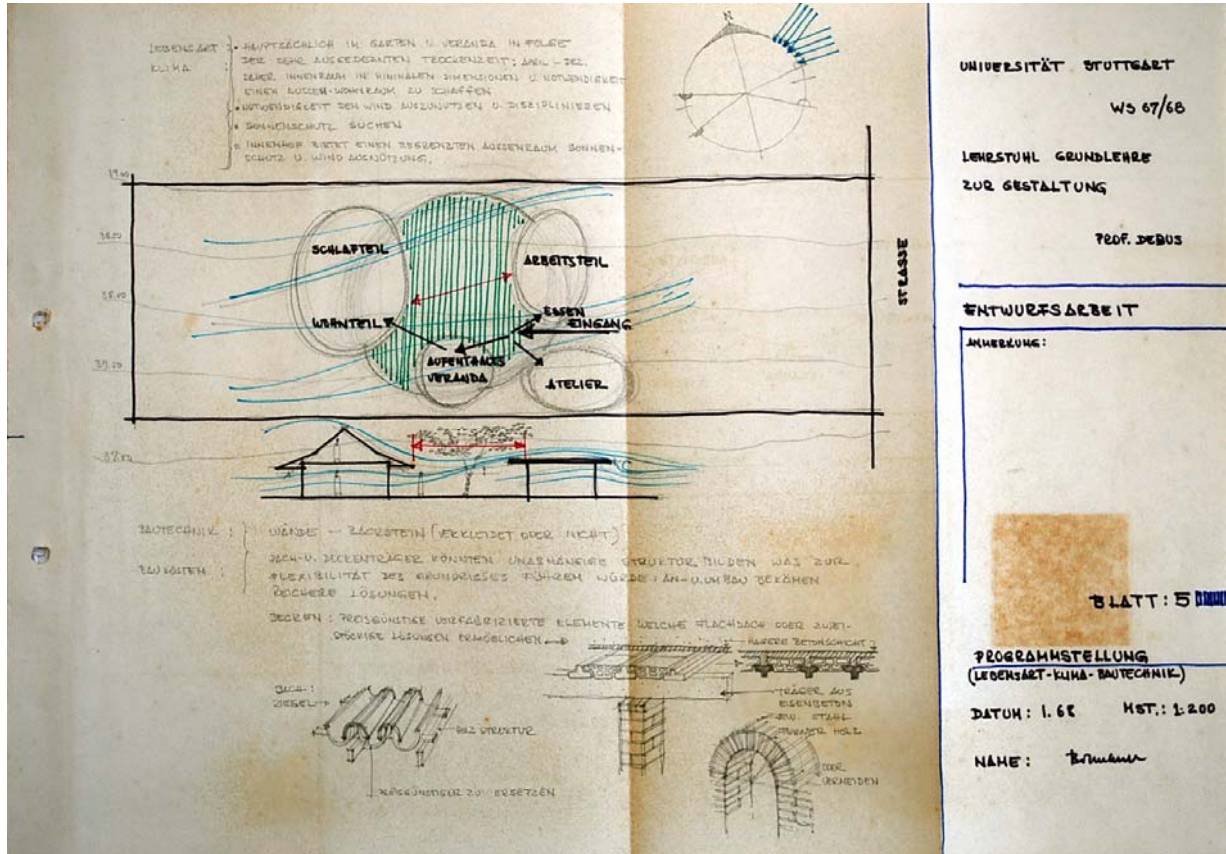 LEBENSART :
KLIMA :
• HAUPTSÄCHLICH IM GARTEN U. VERANDA IN FOLGE
DER SEHR AUSGEDEHNTEN TROCKENZEIT; APRIL – DEZ.
DAHER INNENRAUM IN MINIMALEN DIMENSIONEN U. NOTWENDIGKEIT
EINEN AUSSEN-WOHNRAUM ZU SCHAFFEN
• NOTWENDIGKEIT DEN WIND AUSZUNUTZEN U. DISZIPLINIEREN
• SONNENSCHUTZ SUCHEN
• INNENHOF BIETET EINEN BEGRENZTEN AUSSENRAUM SONNEN-
SCHUTZ U. WIND AUSNÜTZUNG.
N
SCHLAFTEIL
ARBEITSTEIL
WOHNTEIL
ESSEN
EINGANG
AUFENTHALTS
VERANDA
ATELIER
STRASSE
BAUTECHNIK :
WÄNDE – BACKSTEIN (VERKLEIDET ODER NICHT)
BAUKOSTEN :
DACH- U. DECKENTRÄGER KÖNNTEN UNABHÄNGIGE STRUKTUR BILDEN WAS ZUR
FLEXIBILITÄT DES GRUNDRISSES FÜHREN WÜRDE: AN- U. UMBAU BEKÄMEN
REICHERE LÖSUNGEN.
DECKEN : PREISGÜNSTIGE VORFABRIZIERTE ELEMENTE WELCHE FLACHDACH ODER ZWEI-
STÖCKIGE LÖSUNGEN ERMÖGLICHEN
BETONSCHICHT
DACH-:
ZIEGEL
HOLZ STRUKTUR
PREISGÜNSTIGER ZU ERSETZEN
TRÄGER AUS
EISENBETON
BZW. STAHL
ODER HOLZ
ODER
VERMEIDEN
UNIVERSITÄT STUTTGART
WS 67/68
LEHRSTUHL GRUNDLEHRE
ZUR GESTALTUNG
PROF. DEBUS
ENTWURFSARBEIT
ANMERKUNG:
BLATT: 5
PROGRAMMSTELLUNG
(LEBENSART-KLIMA-BAUTECHNIK)
DATUM: 1.68 MST.: 1:200
NAME: